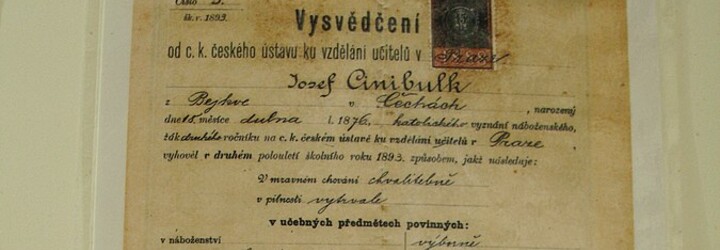 Číslo 5.
šk. r. 1893.
Vysvědčení
od c. k. českého ústavu ku vzdělání učitelů v Praze
Josef Cinibulk
z Bejkve v Čechách, narozený
dne 15. měsíce dubna l. 1876, katolického vyznání náboženského,
žák druhého ročníku na c. k. českém ústavě ku vzdělání učitelů v Praze
vyhověl v druhém polouletí školního roku 1893. způsobem, jakž následuje:
V mravném chování chvalitebně
v pilnosti vytrvale
v učebných předmětech povinných:
v náboženství výborně